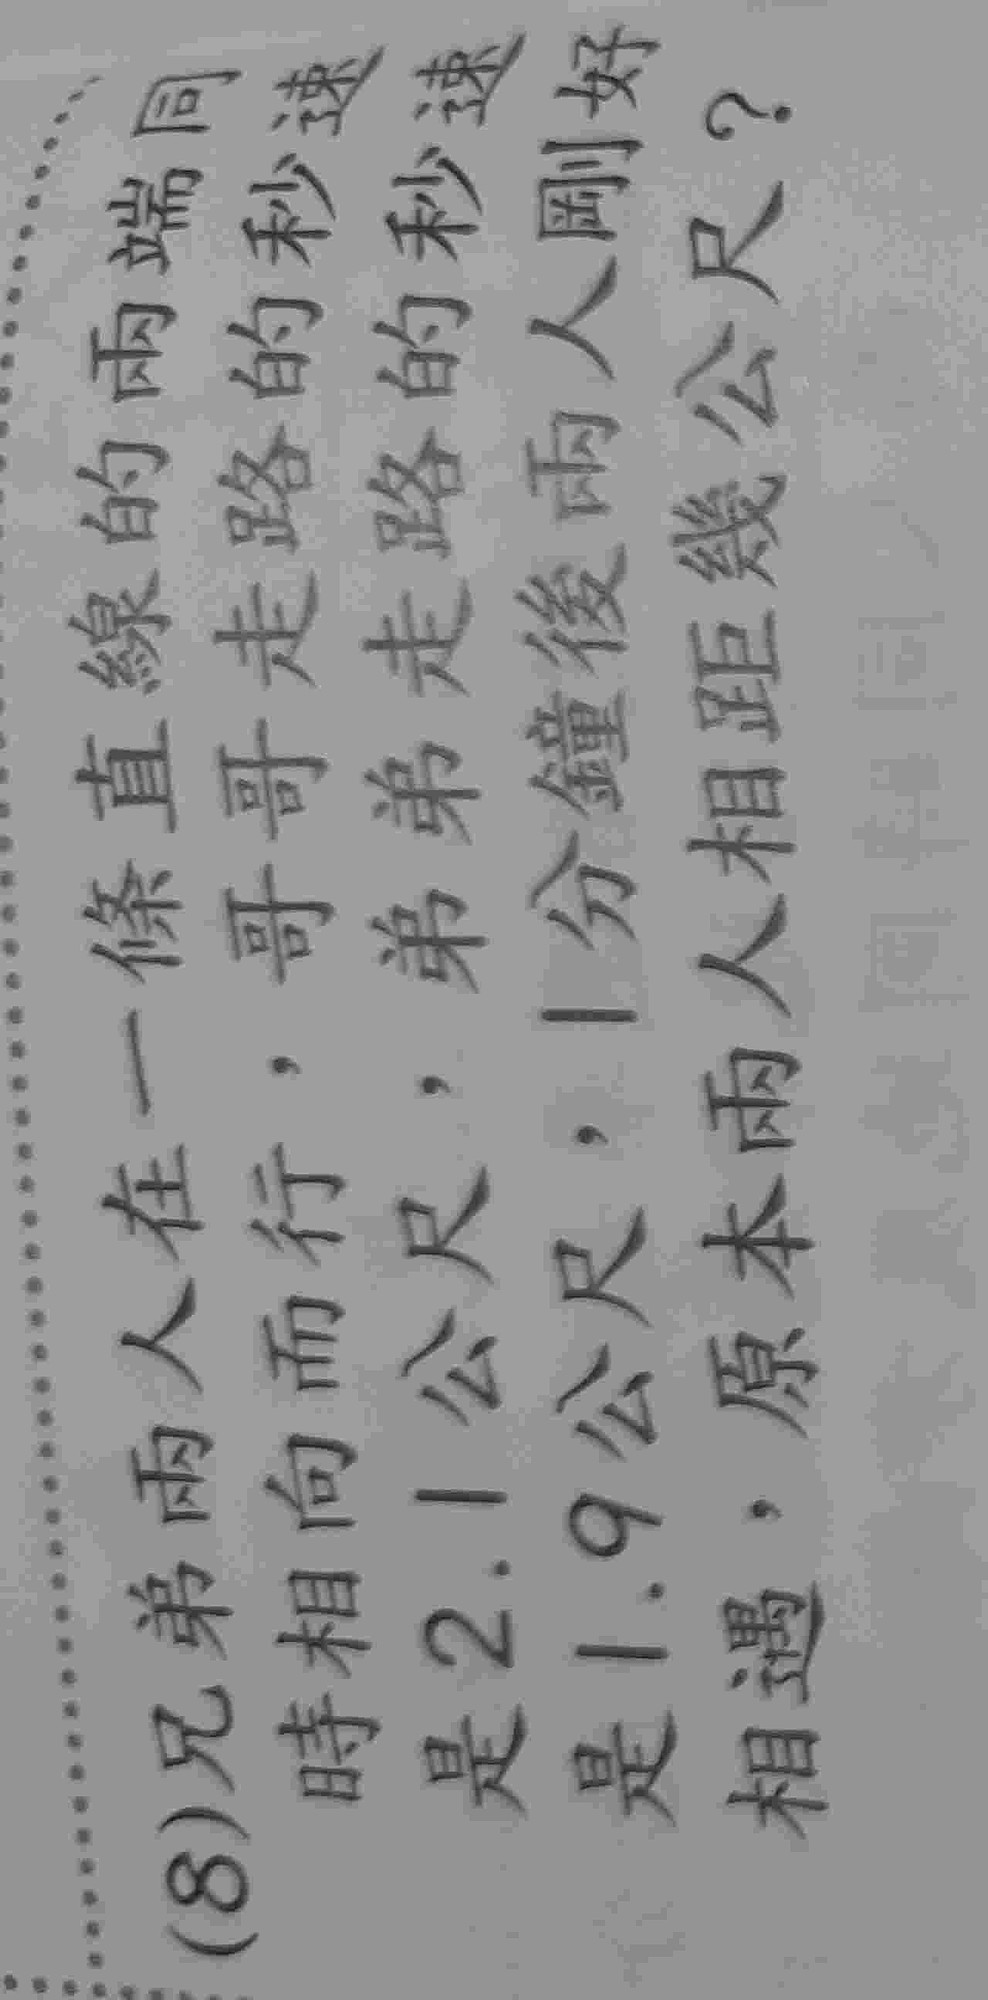 (8)兄弟兩人在一條直線的兩端同
時相向而行，哥哥走路的秒速
是2.1公尺，弟弟走路的秒速
是1.9公尺，1分鐘後兩人剛好
相遇，原本兩人相距幾公尺？